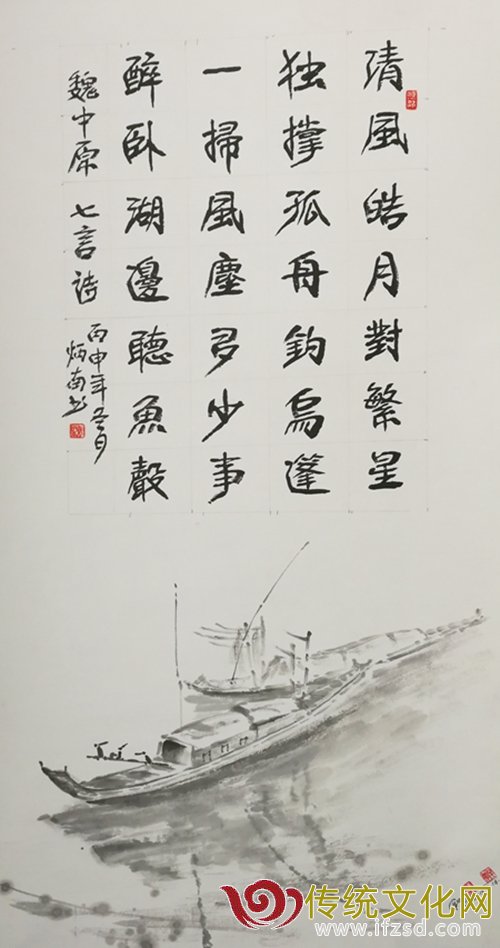 清風皓月對繁星
独撑孤舟钓烏篷
一掃風塵多少事
醉卧湖邊聽魚聲
魏中原 七言诗
丙申年冬月
炳南书
传统文化网
www.ifzsd.com